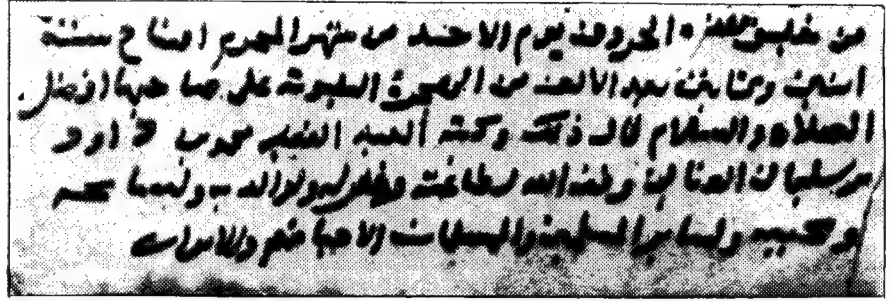 من تعليق هذه الحروف يوم الاحد من شهر المحرم افتتاح سنة
اثنين وثمانين بعد الالف من الهجرة النبوية على صاحبها افضل
الصلاة والسلام قال ذلك وكتبه العبد الفقير داود
بن سليمان العناني وفقه الله لطاعته وغفر له ولوالديه ولمشايخه
ومحبيه ولسائر المسلمين والمسلمات الاحياء منهم والاموات